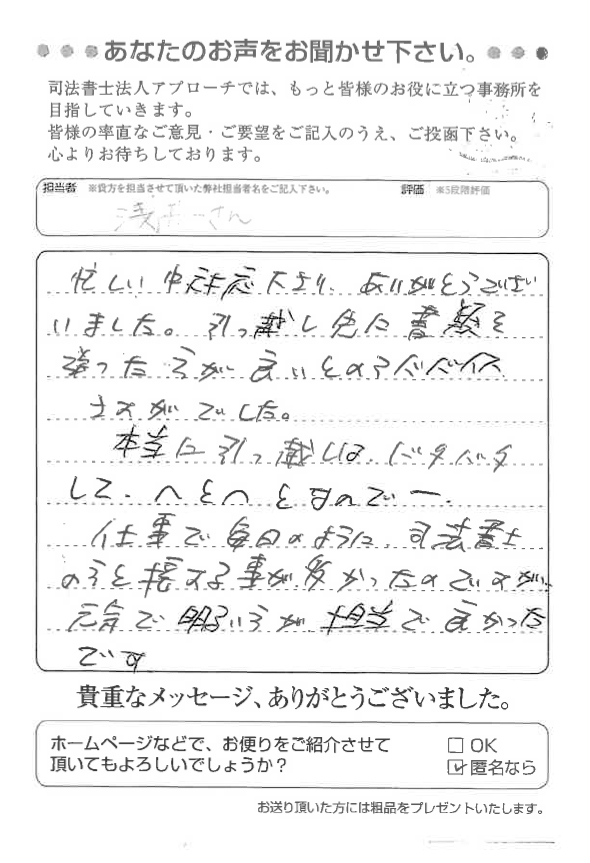 あなたのお声をお聞かせ下さい。
司法書士法人アプローチでは、もっと皆様のお役に立つ事務所を
目指していきます。
皆様の率直なご意見・ご要望をご記入のうえ、ご投函下さい。
心よりお待ちしております。
担当者 ※貴方を担当させて頂いた弊社担当者名をご記入下さい。 評価 ※5段階評価
さん
忙しい中対応下さり、ありがとうござい
いました。引っ越し先に書類を
送った方が良いとのアドバイス
さすがでした。
本当に引っ越しは、バタバタ
して、へとへとなので一、
仕事で毎日のように、司法書士
の方と接する事が多かったのですが、
元気で明るい方が担当で良かった
です
貴重なメッセージ、ありがとうございました。
ホームページなどで、お便りをご紹介させて
頂いてもよろしいでしょうか?
□ OK
☑ 匿名なら
お送り頂いた方には粗品をプレゼントいたします。